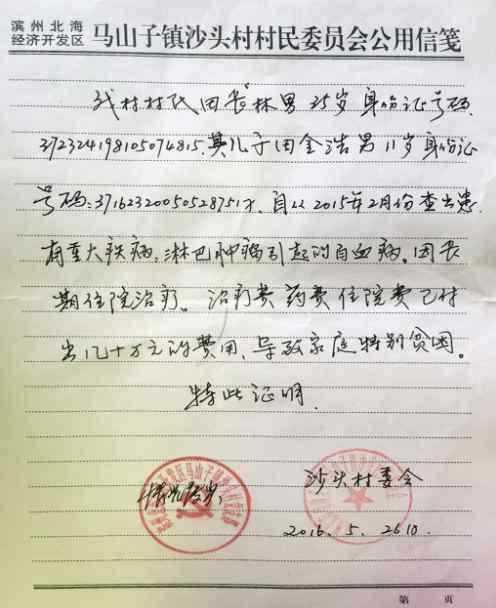 滨州北海
经济开发区 马山子镇沙头村村民委员会公用信笺
我村村民田长林男35岁身份证号码
372324198105074815.其儿子田金浩男11岁身份证
号码:37162320050528751X,自从2015年2月份查出患
有重大疾病,淋巴肿瘤引起的白血病。因长
期住院治疗。治疗费药费住院费已付
出几十万元的费用,导致家庭特别贫困。
特此证明.
情况属实,
沙头村委会
2016.5.26日.
第 页